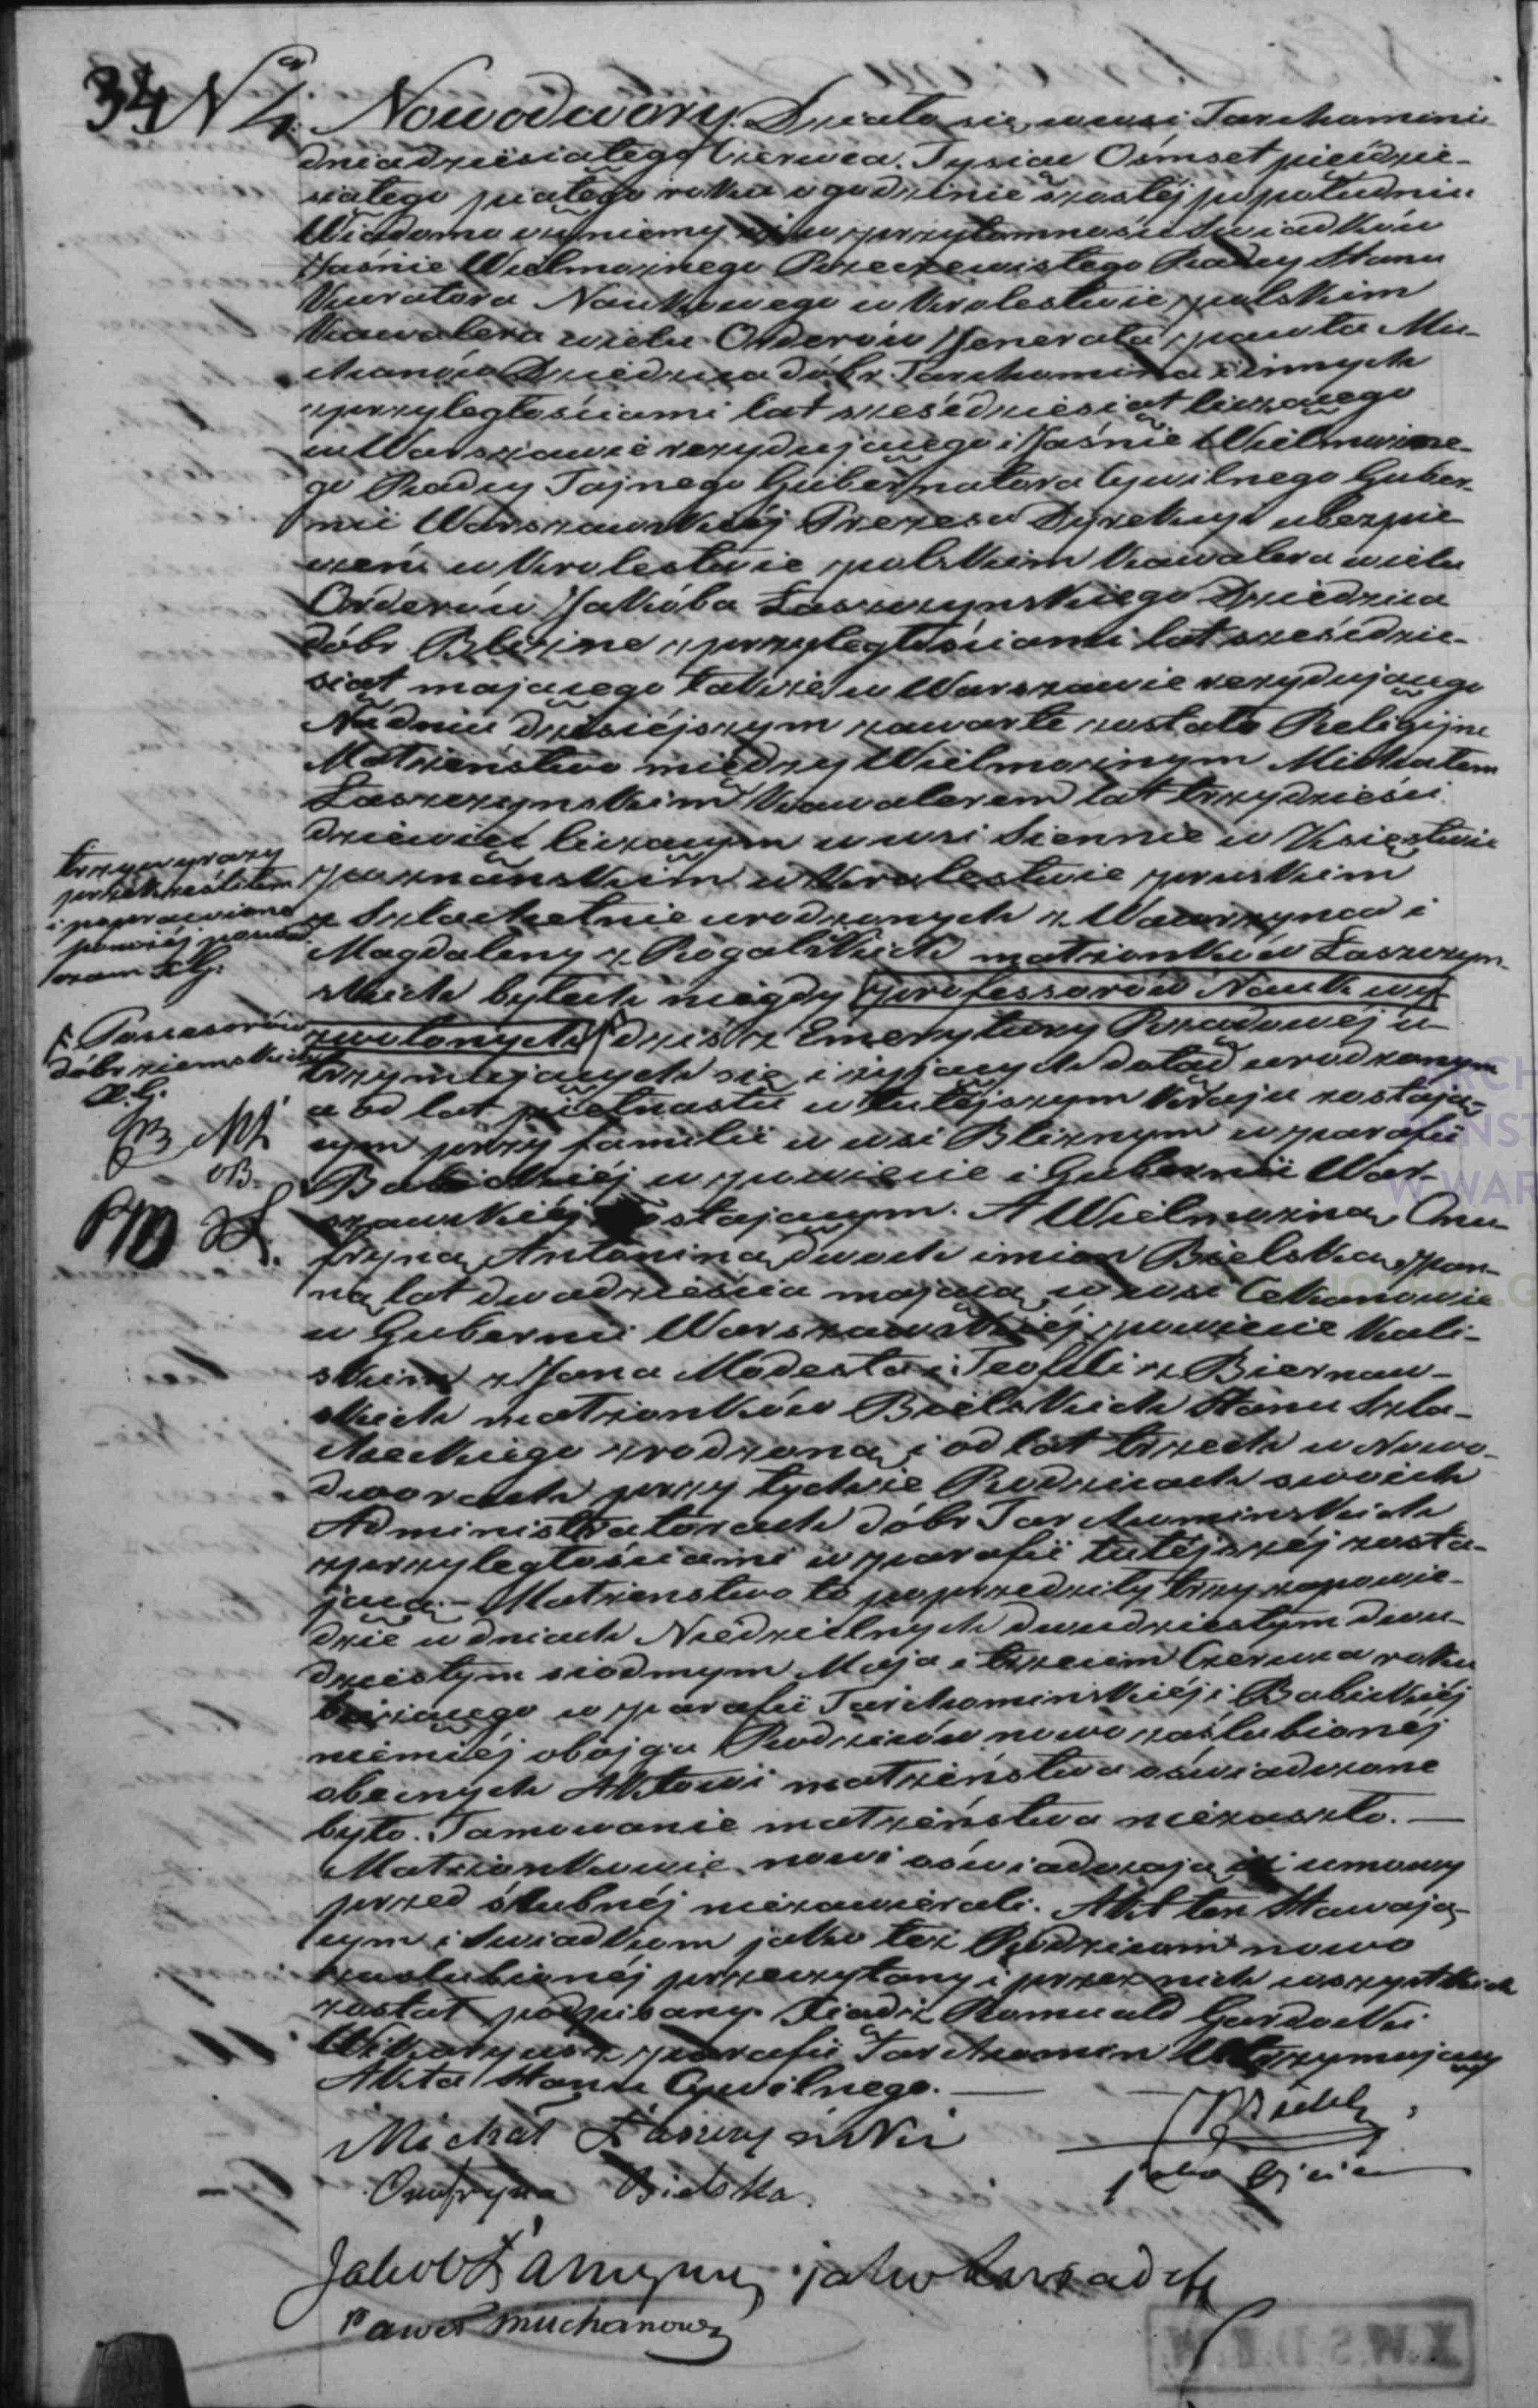 34 N 4. Nowodwory. Działo się wewsi Tarchominie
dnia dziesiątego Czerwca. Tysiąc Ośmset pięćdzie-
siątego piątego roku o godzinie szostéj popołudniu
Wiadomo czyniemy iż w przytomności Swiadków
Jaśnie Wielmożnego Rzeczewistego Radcy Stanu
Kuratora Naukowego w Krolestwie polskim
Kawalera wielu Orderów Jenerała pawła Mu-
chanów Dziedzica dóbr Tarchomina i innych
z przyległościami lat sześćdziesiąt liczącego
w Warszawie rezydującego i Jaśnie Wielmożne-
go Radcy Tajnego Gubernatora Cywilnego Guber-
nii Warszawskiéj Prezesa Dyrekcyi ubezpie
czeń w Krolestwie polskiem Kawalera wielu
Orderów Jakóba Łaszczynskiego Dziedzica
dóbr Blizne z przyległościami lat sześćdzie-
siąt mającego także w Warszawie rezydującego
Na dniu dzisiéjszym zawarte zostało Religijne
Małżeństwo między Wielmożnym Michałem
Łaszczynskim Kawalerem lat trzydzieści
dziewięć liczącym w wsi Siennie w Księstwie
poznańskiem w Krolestwie pruskim
z Szlachetnie urodzonych z Wawrzynca i
Magdaleny z Rogalskich małżonków Łaszczyn-
skich byłych niegdy professorów Nauk wy
zwolonych dziś z Emerytury Rządowéj u-
trzymujących się i żyjących dotąd urodzonym
a od lat piętnastu w tutéjszym Kraju zostają-
cym przy familii w wsi Bliznym w parafii
Babickiéj w powiecie i Gubernii War-
szawskiéj zostającym. A Wielmożną Onu-
fryną Antoniną dwoch imion Bielską, pan-
ną lat dwadzieścia mającą, w wsi Cekanowie
w Gubernii Warszawskiéj powiecie Kali-
skim z Jana Modesta i Teofili z Biernac-
kich małżonków Bielskich Stanu Szla-
checkiego zrodzoną i od lat trzech w Nowo-
dworach przy tychże Rodzicach swoich
Administratorach dóbr Tarchominskich
z przyległościami w parafii tutéjszéj zosta-
jącą. – Małżenstwo to poprzedziły trzy zapowie-
dzie w dniach Niedzielnych dwudziestym dwu-
dziestym siodmym Maja i trzecim Czerwca roku
bieżącego w parafii Tarchominskiéj i Babickiéj
niemniéj obojga Rodziców nowo zaślubionéj
obecnych Aktowi małżeństwa oświadczone
było. Tamowanie małżeństwa niezaszło. —
Małżonkowie nowi oświadczają iż umowy
przed ślubnéj niezawierali. Akt ten Stawają-
cym i Swiadkom jako też Rodzicom nowo
zaslubionéj przeczytany i przez nich wszystkich
został podpisany. Xiądz Romuald Gardocki
Wikaryusz parafii Tarchomin Utrzymujący
Akta Stanu Cywilnego. —
trzy wyrazy
przekreśliłem
i poprawione
X.G.
Possesorów
dóbr ziemskich
X.G.
JB MŁ
OB.
PM JŁ.
Michał Łaszczyński
JBielski
jako Ojciec
Onufryna Bielska.
Jakob Łaszczynski jako swiadek
Paweł Muchanow